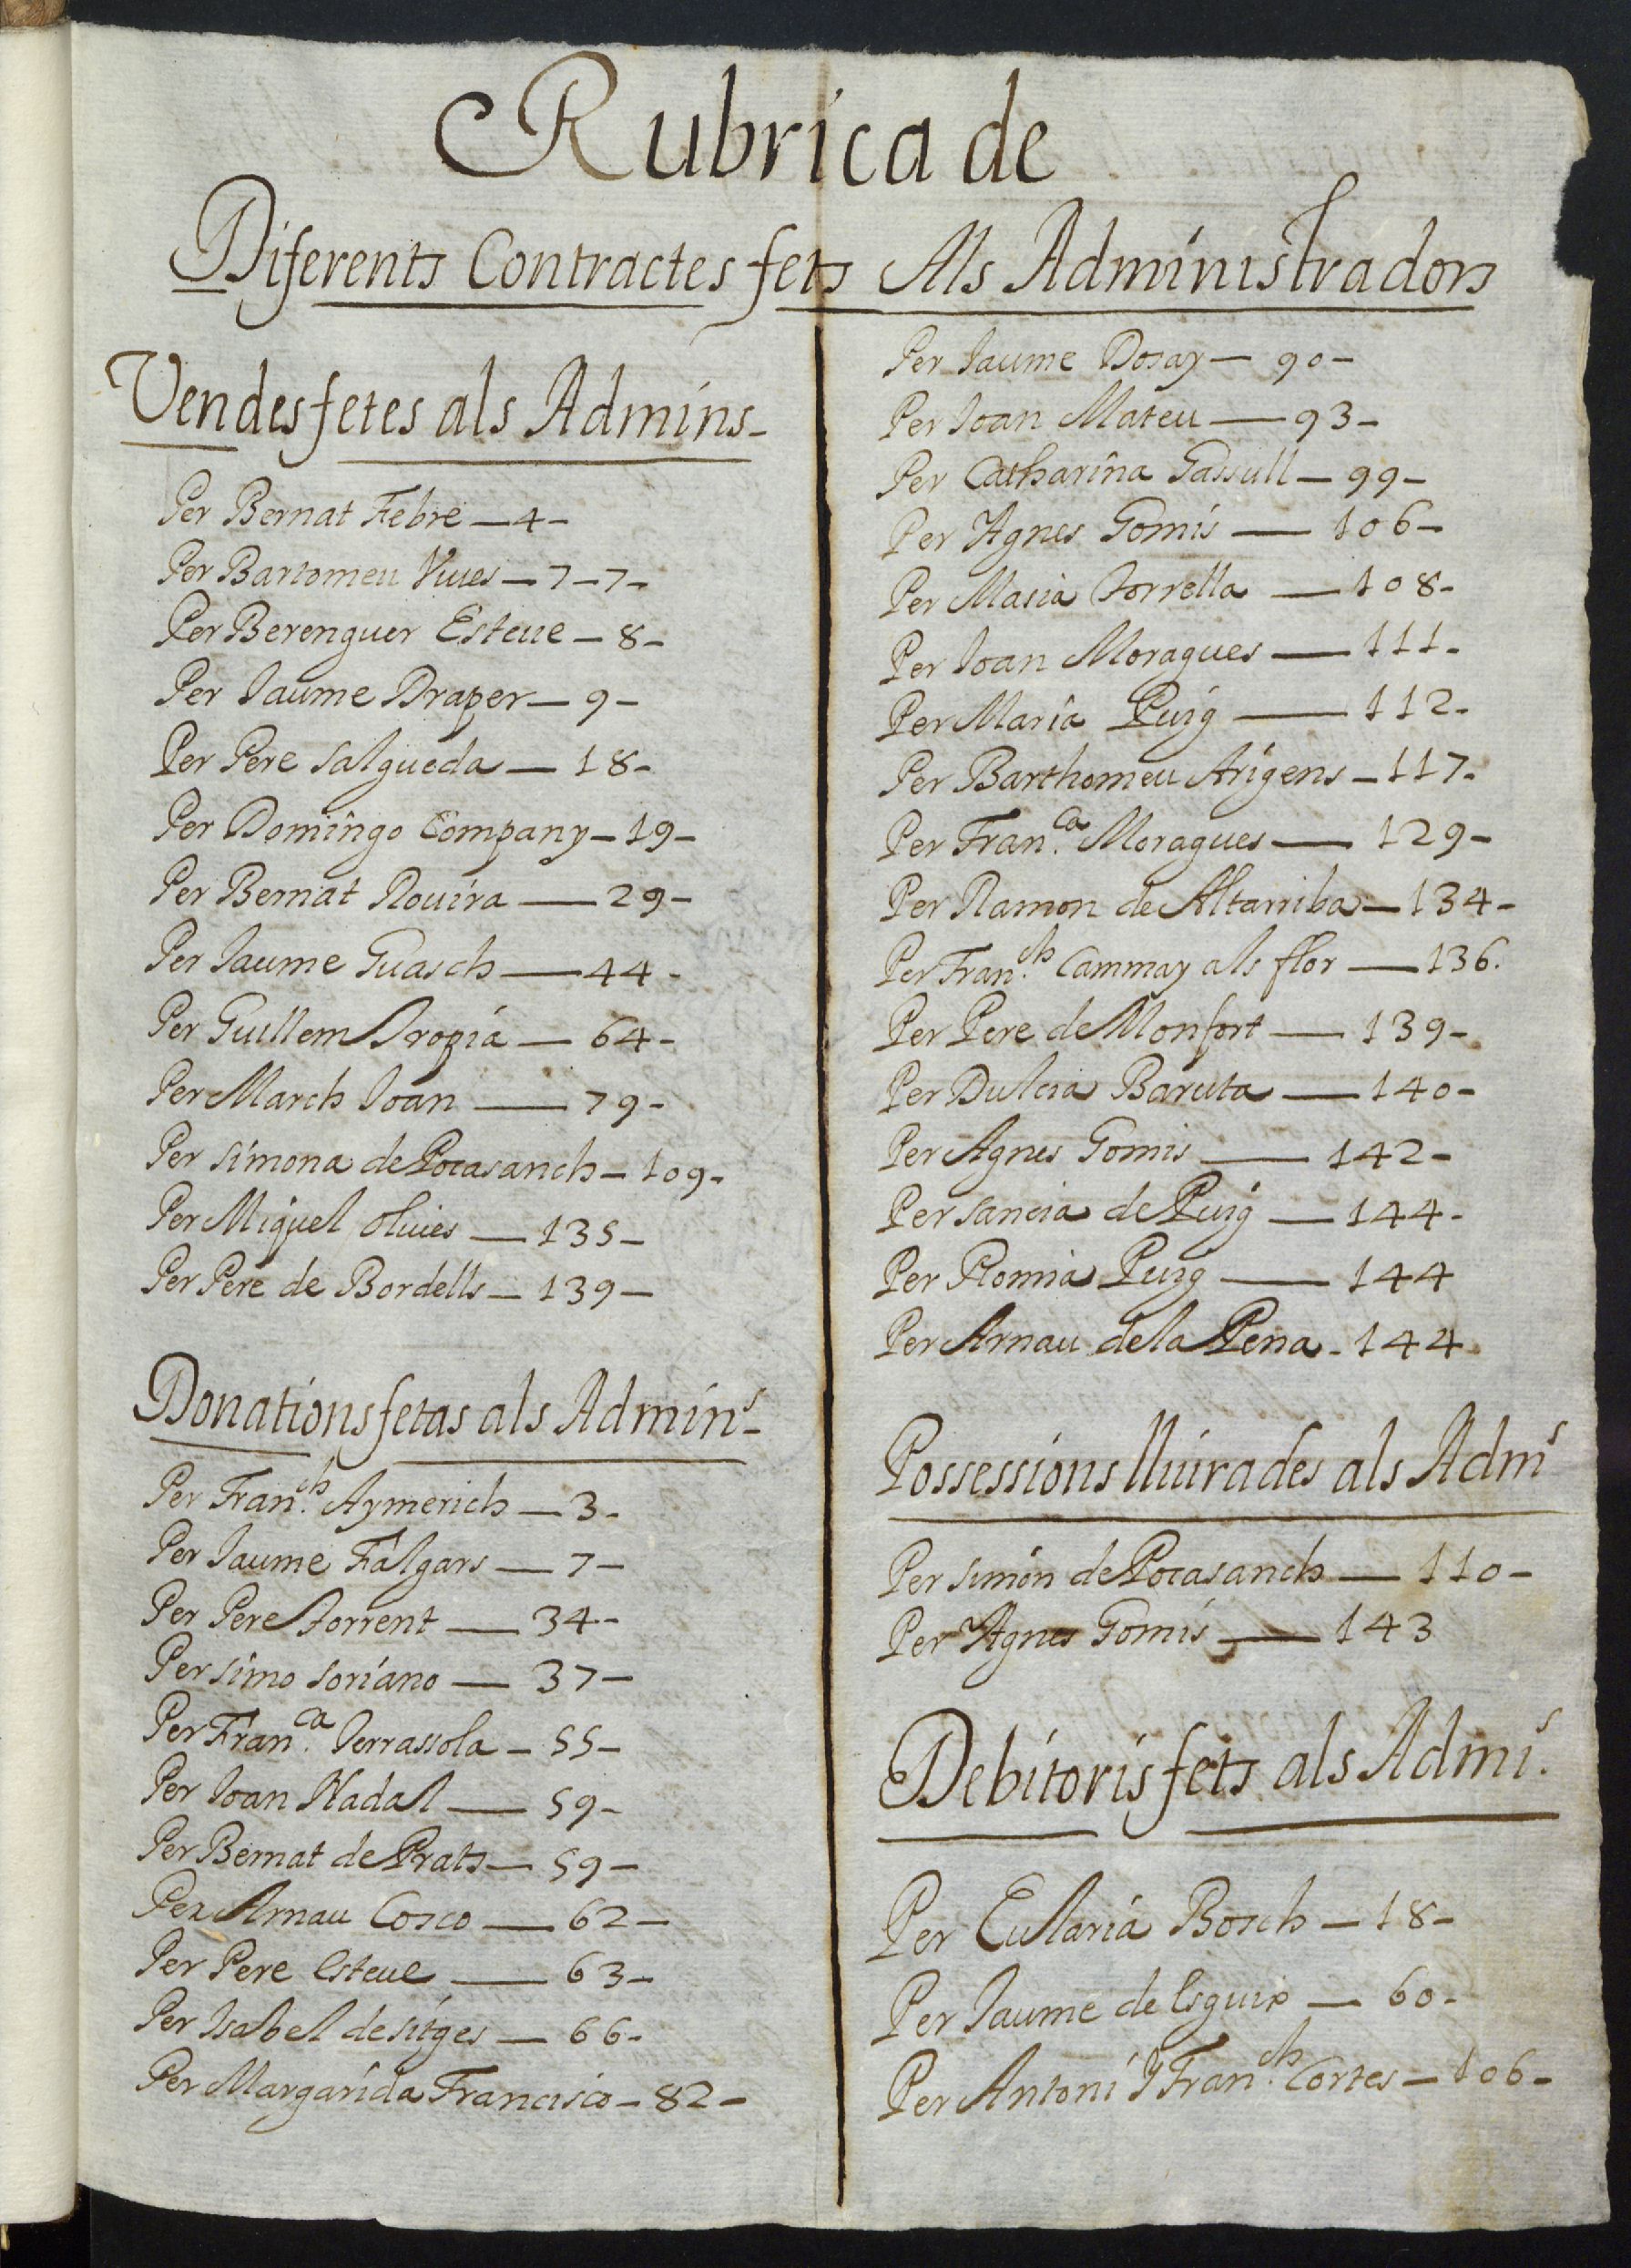 Rubrica de
Diferents Contractes fets Als Administradors
Vendes fetes als Admins-
Per Bernat Febre — 4 -
Per Bartomeu Viues — 7 - 7 -
Per Berenguer Esteue — 8 -
Per Iaume Draper — 9 -
Per Pere salgueda — 18 -
Per Domingo Company — 19 -
Per Bernat Rouira — 29 -
Per Iaume Guasch — 44 -
Per Guillem Tropia — 64 -
Per March Ioan — 79 -
Per simona de Pocasanch — 109 -
Per Miquel oliues — 135 -
Per Pere de Bordells — 139 -
Donations fetas als Admin.s -
Per Fran.ch Aymerich — 3 -
Per Iaume Falgars — 7 -
Per Pere Torrent — 34 -
Per simo soriano — 37 -
Per Fran.ca Terrassola — 55 -
Per Ioan Nadal — 59 -
Per Bernat de Prats — 59 -
Per Arnau Cosco — 62 -
Per Pere Esteue — 63 -
Per Isabel de sitges — 66 -
Per Margarida Francisco — 82 -
Per Iaume Dosay — 90 -
Per Ioan Mateu — 93 -
Per Catharina Gassull — 99 -
Per Agnes Gomis — 106 -
Per Masia Torrella — 108 -
Per Ioan Moragues — 111 -
Per Maria Puig — 112 -
Per Barthomeu Arigens — 117 -
Per Fran.ca Moragues — 129 -
Per Ramon de Altarriba — 134 -
Per Fran.ch Cammay als flor — 136.
Per Pere de Monfort — 139 -
Per Dulcia Baruta — 140 -
Per Agnes Gomis — 142 -
Per sancia de Puig — 144 -
Per Romia Puig — 144
Per Arnau de la Pena - 144
Possessions lliurades als Adm.s
Per simon de Pocasanch — 110 -
Per Agnes Gomis — 143
Debitoris fets als Admi.s
Per Eularia Bosch — 18 -
Per Iaume de Esguix — 60 -
Per Antoni y Fran.ch Cortes — 106 -